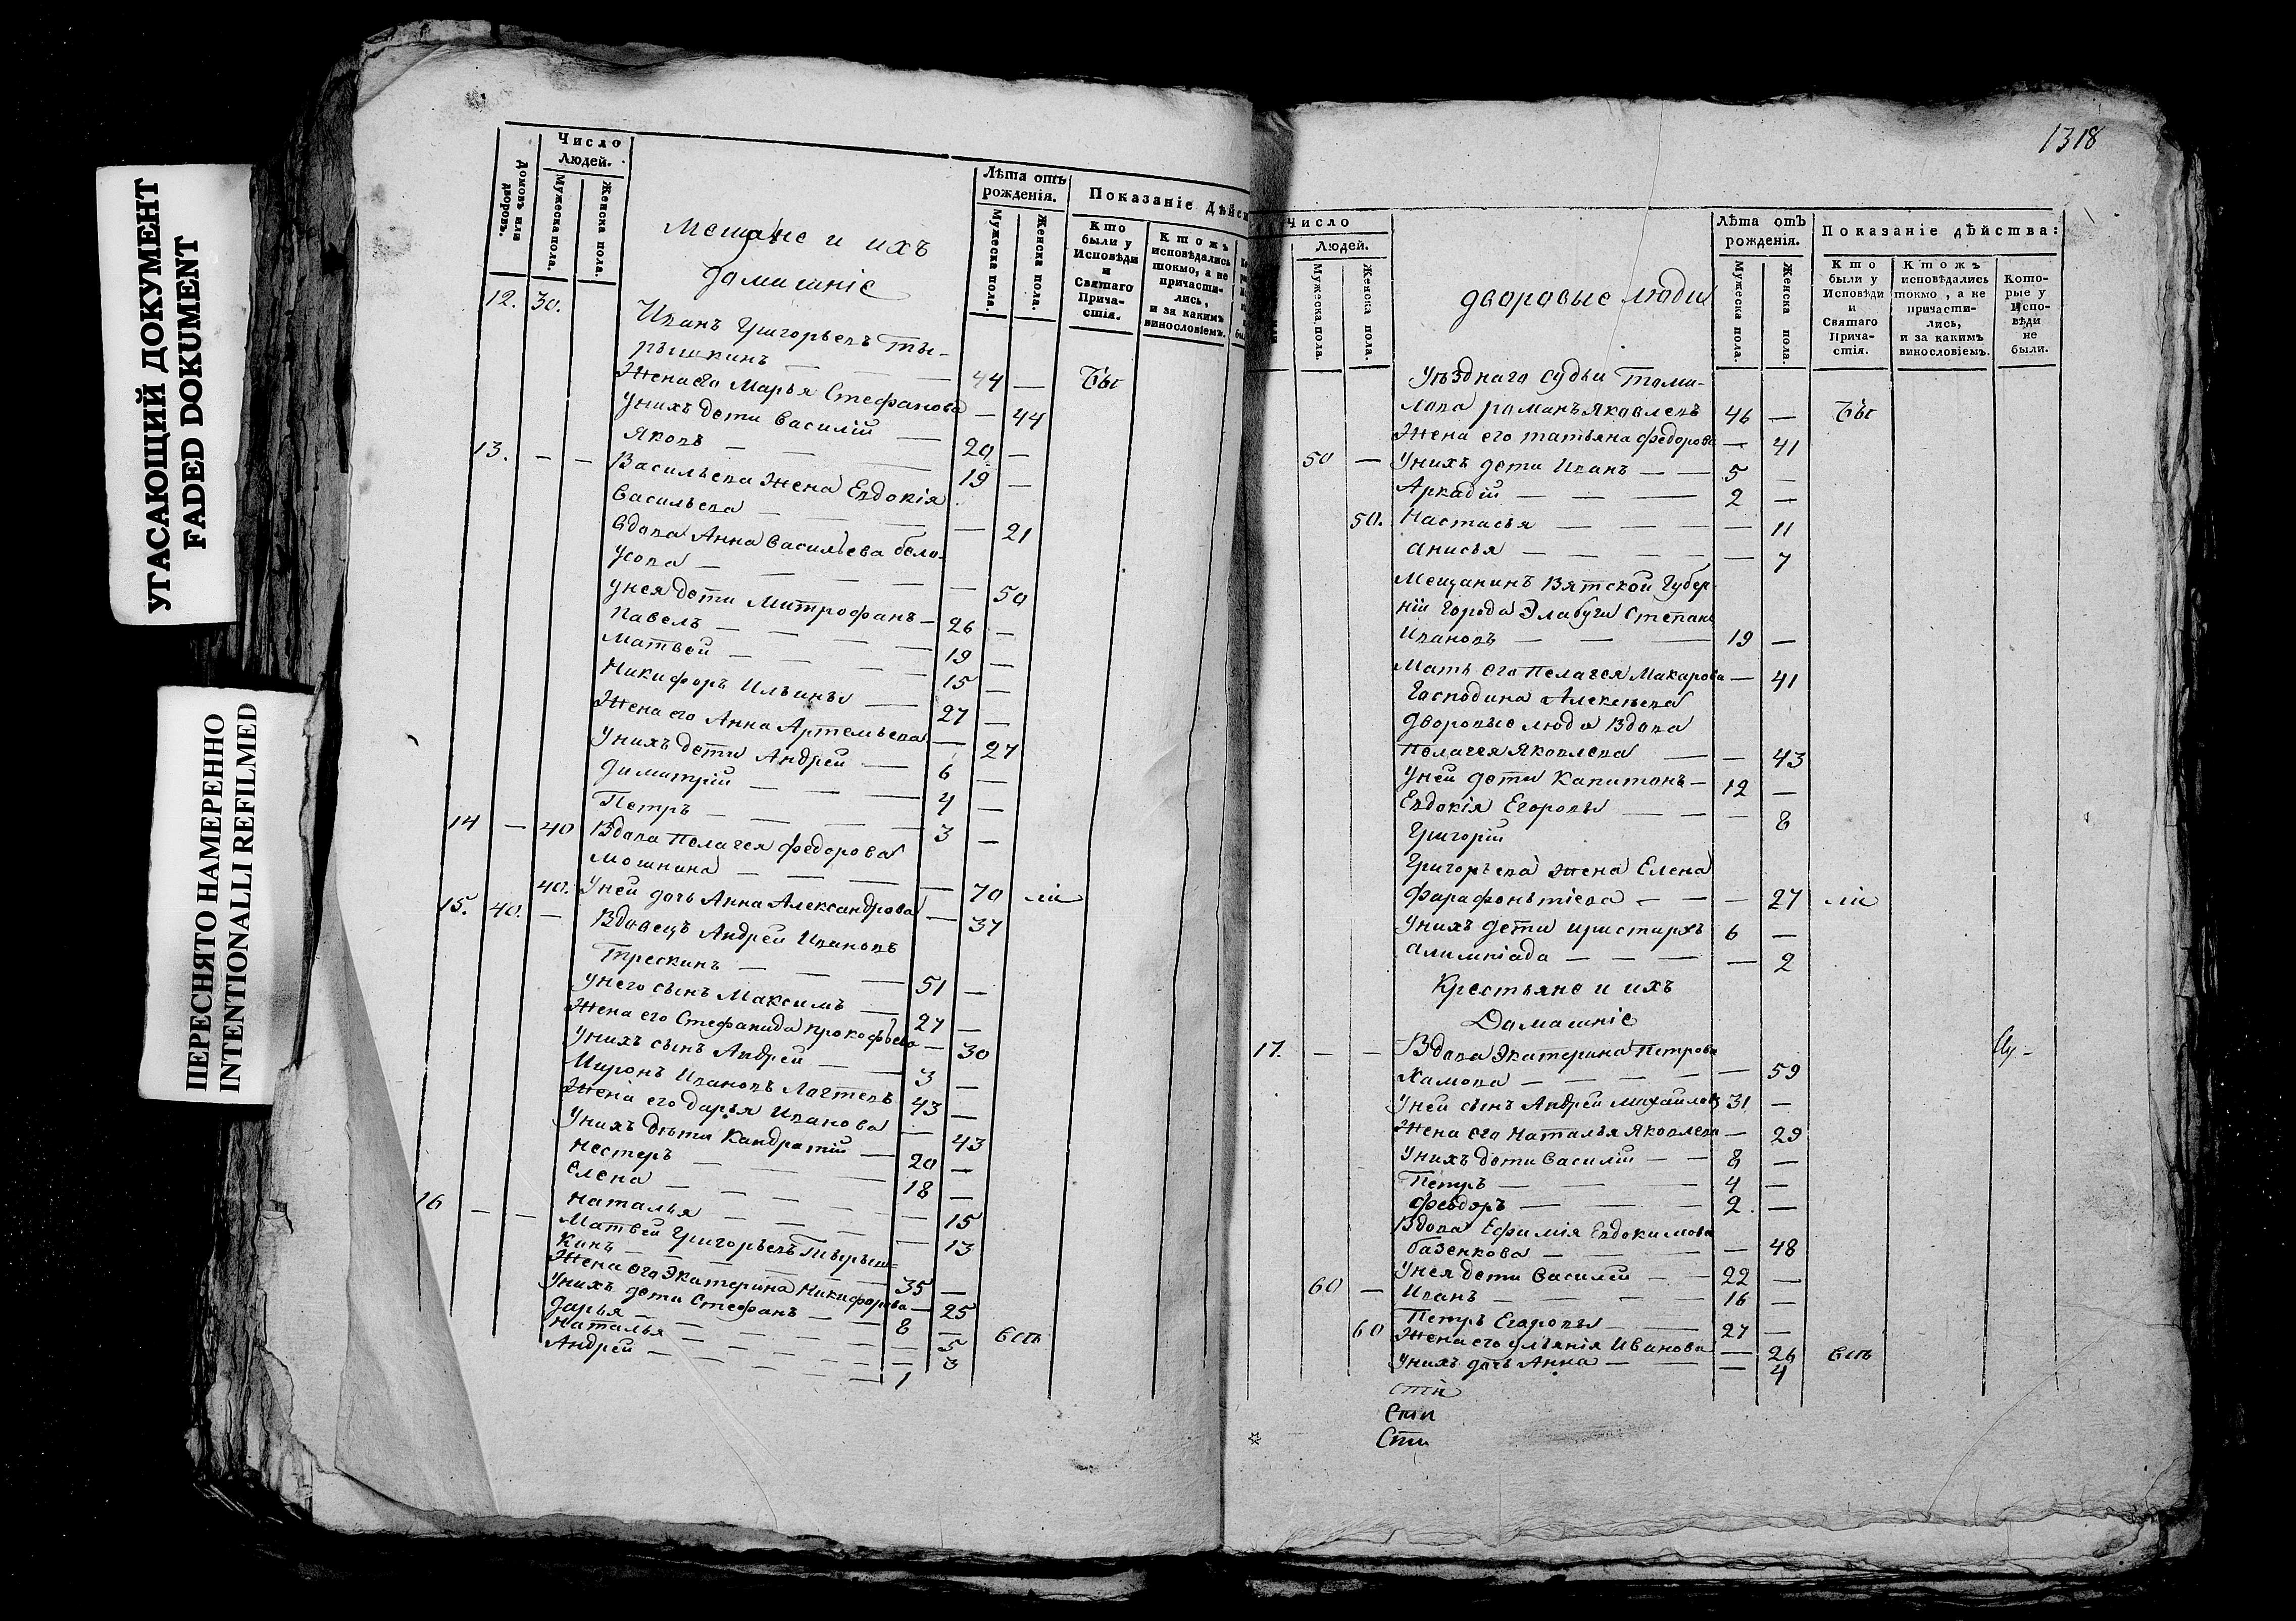 УГАСАЮЩИЙ ДОКУМЕНТ
FADED DOKUMENT
ПЕРЕСНЯТО НАМЕРЕННО
INTENTIONALLI REFILMED
домовъ или дворовъ.
Число
Людей.
Мужеска пола.
Женска пола.
Мещане и ихъ
домашніе
Лѣта отъ
рожденія.
Мужеска пола.
Женска пола.
Показаніе Дѣйс
Кто
были у
Исповѣди
и
Святаго
Прича-
стія.
Ктожъ
исповѣдались
токмо, а не
причасти-
лись,
и за какимъ
винословіемъ.
12. 30. Иванъ Григорьевъ Ты-
рышкинъ — — 44 — бы
Жена его Марья Стефанова — 44
Унихъ дети Василій — 20 —
Яковъ — — 19 —
13. — — Васильева жена Евдокія
Васильева — — — 21
Вдова Анна Васильева бело-
усова — — — — 50
Унея дети Митрофанъ — 26 —
Павелъ — — — 19 —
Матвей — — — 15 —
Никифоръ Ильинъ — 27 —
Жена его Анна Артемьева — 27
Унихъ дети Андрей — 6 —
Димитрій — — — 4 —
Петръ — — — 3 —
14 — 40 Вдова Пелагея Федорова
Мошнина — — — — 70 ли
40. Уней дочь Анна Александрова — 37
15. 40. — Вдовецъ Андрей Ивановъ
Трескинъ — — — 51 —
Унего сынъ Максимъ — 27 —
Жена его Стефанида Прокофьева — 30
Унихъ сынъ Андрей — — 3 —
Миронъ Ивановъ Лаптевъ 43 —
Жена его дарья Иванова — 43
Унихъ дѣти Кандратій — 20 —
Нестеръ — — — 18 —
Елена — — — — 15
Наталья — — — — 13
16 — — Матвей Григорьевъ Тырыш-
кинъ — — — — 35 —
Жена его Екатерина Никифорова — 25
Унихъ дети Стефанъ — — 8 —
дарья — — — — — 5 всѣ
Наталья — — — — — 3
Андрей — — — — — 1
1318
Число
Людей.
Мужеска пола.
Женска пола.
дворовые люди
Лѣта отъ
рожденія.
Мужеска пола.
Женска пола.
Показаніе дѣйства:
Кто
были у
Исповѣди
и
Святаго
Прича-
стія.
Ктожъ
исповѣдались
токмо, а не
причасти-
лись,
и за какимъ
винословіемъ.
Кото-
рые у
Испо-
вѣди
не
были.
Уѣзднаго судьи Томи-
лова романъ Яковлевъ 46 — бы
Жена его татьяна федорова — 41
50 — Унихъ дети Иванъ — — 5 —
Аркадій — — — 2 —
50. Настасья — — — — 11
анисья — — — — — 7
Мещанинъ Вятской Губер-
ніи Города Элабуги Степанъ
Ивановъ — — — 19 —
Мать его Пелагея Макарова — 41
Господина Алексѣева
дворовые люди Вдова
Пелагея Яковлева — — 43
Уней дети Капитонъ — 12 —
Евдокія Егоровы — — — 8
Григорій
Григорьева жена Елена
Фарафоньтіева — — — 27 ли
Унихъ дети аристархъ 6 —
алимпіада — — — — 2
Крестьяне и ихъ
Домашніе
17. — — Вдова Экатерина Петрова
Хамова — — — — — 59
Уней сынъ Андрей Михайловъ 31 —
Жена его Наталья Яковлева — 29
Унихъ дети Василій — — 8 —
Петръ — — — 4 —
Феодоръ — — — 2 —
Вдова Ефимія Евдокимова
базенкова — — — — 48
Унея дети Василей — — 22 —
60 — Иванъ — — — — 16 —
Петръ Егоровъ — — 27 —
60 Жена его ульянія Иванова — 26 всѣ
Унихъ дочь Анна — — — 4